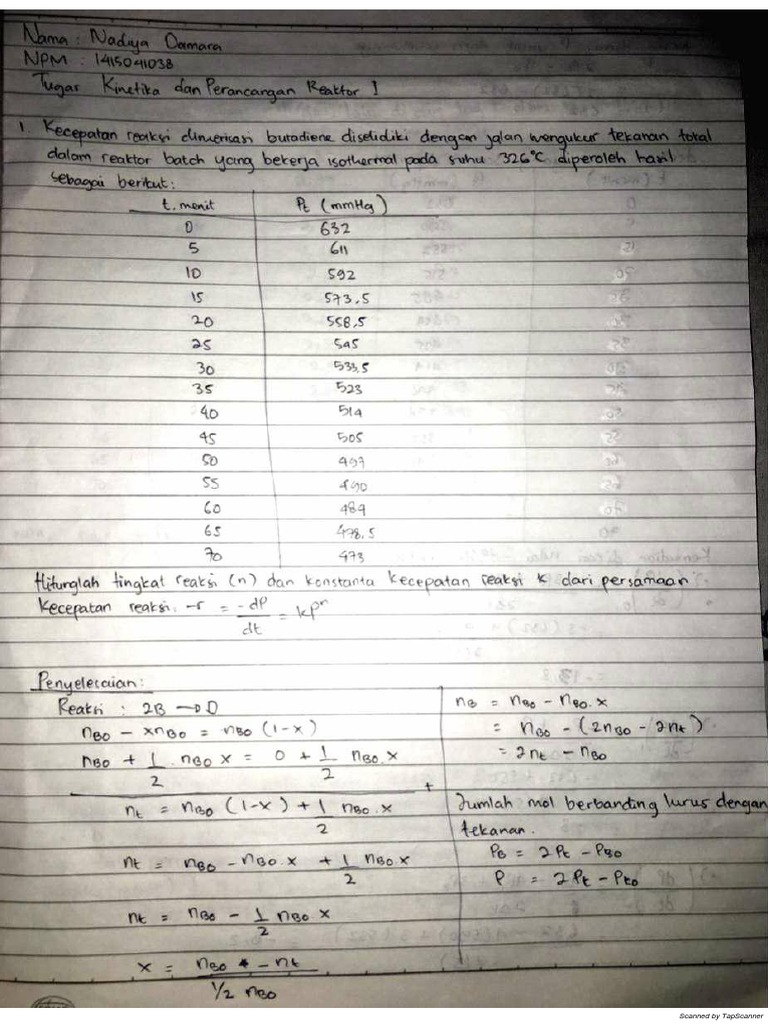 Nama : Nadiya Damara
NPM : 1415041038
Tugas Kinetika dan Perancangan Reaktor 1
1. Kecepatan reaksi dimerisasi butadiene diselidiki dengan jalan mengukur tekanan total
dalam reaktor batch yang bekerja isothermal pada suhu 326°C diperoleh hasil
sebagai berikut:
t. menit Pt (mmHg)
0 632
5 611
10 592
15 573,5
20 558,5
25 545
30 533,5
35 523
40 514
45 505
50 497
55 490
60 484
65 478,5
70 473
Hitunglah tingkat reaksi (n) dan konstanta kecepatan reaksi k dari persamaan
kecepatan reaksi, -r = -dP/dt = kPⁿ
Penyelesaian:
Reaksi : 2B → D
nBO - xnBO = nBO (1-x)
nBO + 1/2 . nBO x = 0 + 1/2 nBO.x
+
nt = nBO (1-x) + 1/2 nBO.x
nt = nBO - nBO.x + 1/2 nBO x
nt = nBO - 1/2 nBO x
x = nBO - nt / 1/2 nBO
nB = nBO - nBO.x
= nBO - (2nBO - 2nt)
= 2nt - nBO
Jumlah mol berbanding lurus dengan
tekanan.
PB = 2Pt - PBO
P = 2Pt - Pto
Scanned by TapScanner